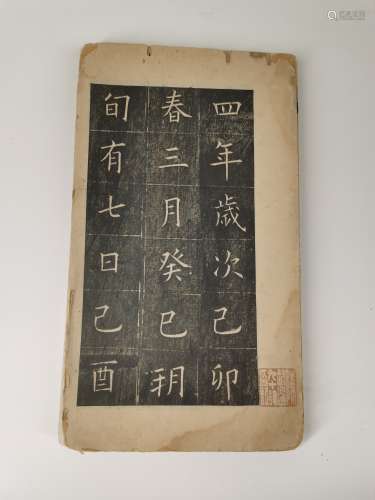 四年歲次己卯
春三月癸巳朔
旬有七日己酉